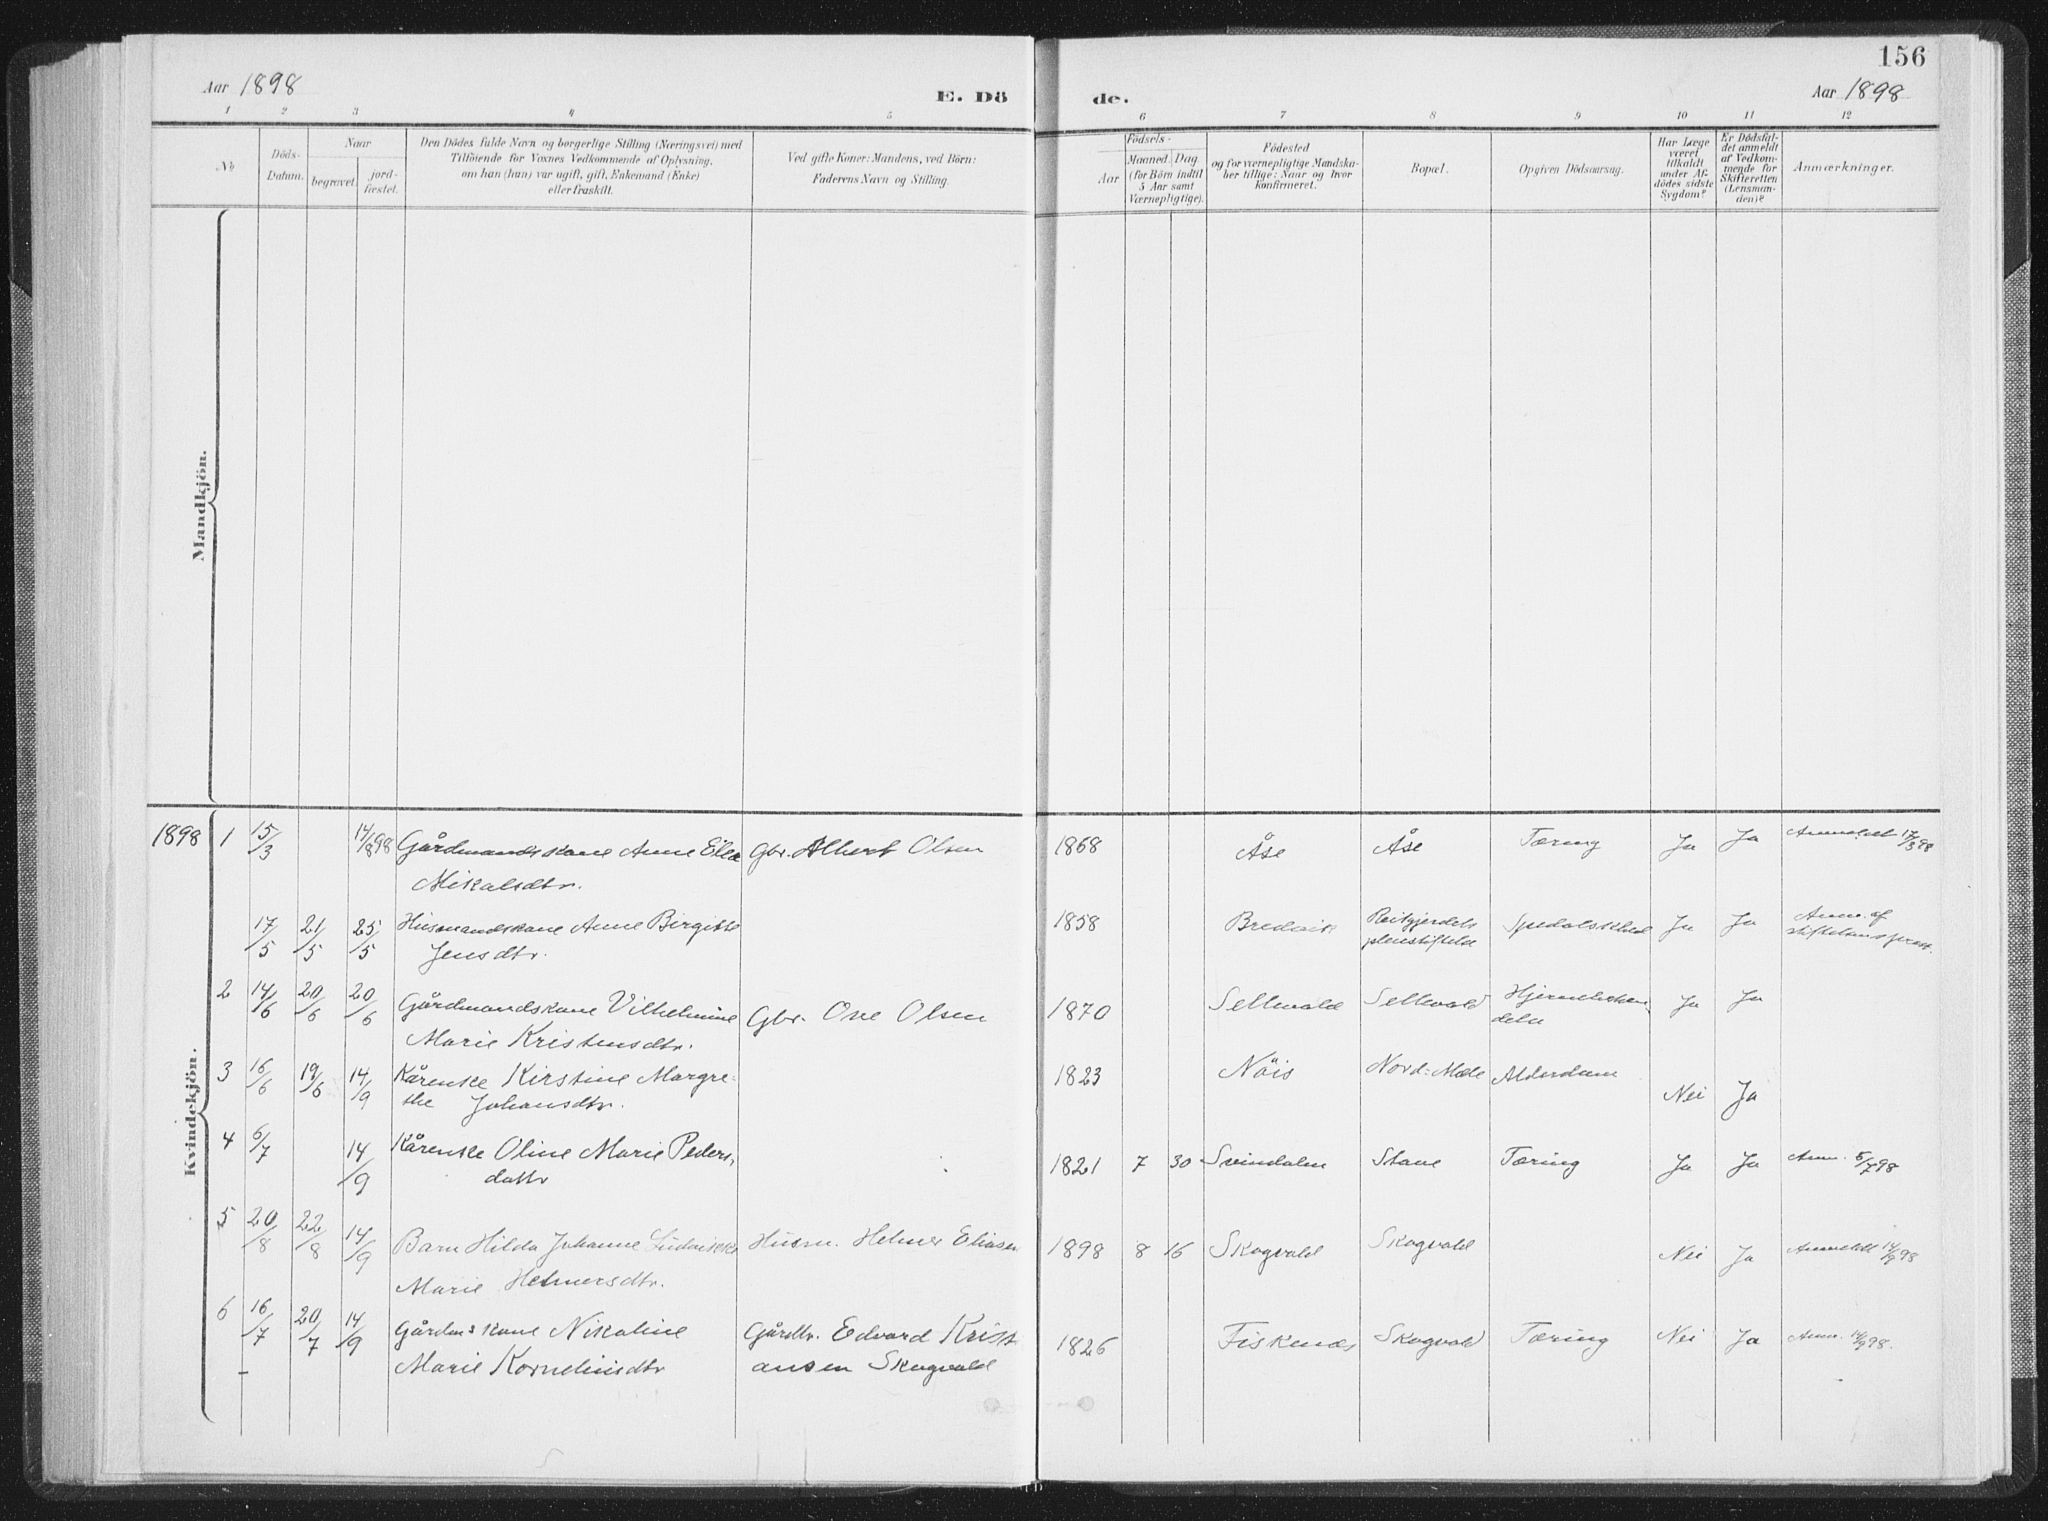 156
Aar 1898
E. Dö
de.
Aar 1898
1 2 3 4 5 6 7 8 9 10 11 12
No.
Döds-
Datum.
Naar
begravet.
jord-
fæstet.
Den Dödes fulde Navn og borgerlige Stilling (Næringsvei) med
Tilföiende for Voxnes Vedkommende af Oplysning,
om han (hun) var ugift, gift, Enkemand (Enke)
eller fraskilt.
Ved gifte Koner: Mandens, ved Börn:
Faderens Navn og Stilling.
Födsels-
Aar
Maaned. Dag
(for Börn indtil
5 Aar samt
Værnepligtige).
Födested
og for værnepligtige Mandska-
ber tillige: Naar og hvor
Konfirmeret.
Bopæl.
Opgiven Dödsaarsag.
Har Læge
været
tilkaldt
under Af-
dödes sidste
Sygdom?
Er Dödsfal-
det anmeldt
af Vedkom-
mende for
Skifteretten
(Lensman-
den)?
Anmærkninger.
Mandkjön.
Kvindekjön.
1898 1 15/3 14/8 98 Gårdmandskone Anne Elea Gbr. Albert Olsen 1868 Åse Åse Tæring Ja Ja Anmeldt 17/3 98
Mikalsdtr.
17/5 21/5 25/5 Husmandskone Anne Birgitte 1858 Bredvik Reitgjerdets Spedalskhed Ja Ja Anm. af
Jensdtr. pleiestiftelse stiftelsens prest.
2 14/6 20/6 20/6 Gårdmandskone Vilhelmine Gbr. Ove Olsen 1870 Sellevold Sellevold Ja Ja
Marie Kristensdtr.
3 16/6 19/6 14/9 Kårenke Kirstine Margre- 1823 Nöis Nord: Mæle Alderdom Nei Ja
the Johansdtr.
4 6/7 14/9 Kårenke Oline Marie Peders- 1821 7 30 Stave Tæring Ja Ja Anm. 5/7 98
dattr
5 20/8 22/8 14/9 Barn Hilda Johanne Ludvikke Husm. Helmer Eliasen 1898 8 16 Skogvold Skogvold Nei Ja Anmeldt 14/9 98
Marie Helmersdtr.
6 16/7 20/7 14/9 Gårdmskone Nikoline Gårdbr. Edvard Krist 1826 Skogvold Tæring Nei Ja Anm. 14/9 98.
Marie Korneliusdtr ansen Skogvold